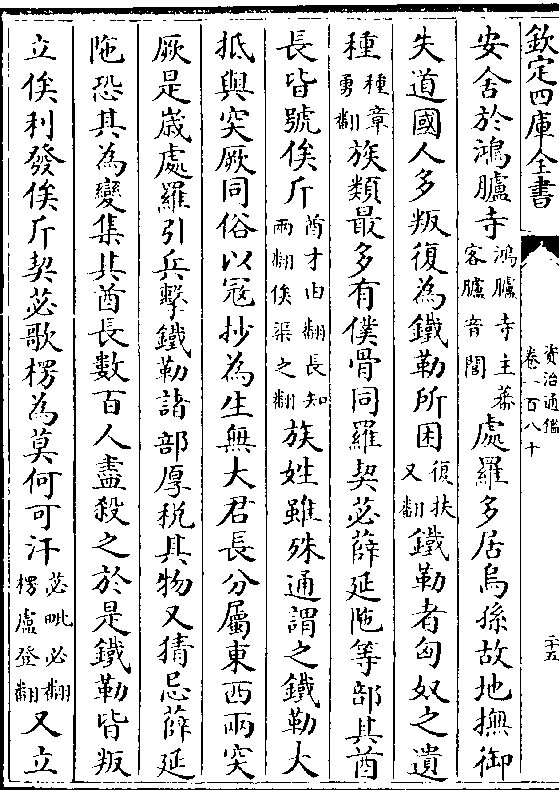 欽定四庫全書
資治通鑑
卷一百八十
二十五
安舍於鴻臚寺鴻臚寺主蕃客臚音閭處羅多居烏孫故地撫御
失道國人多叛復為鐵勒所困復扶又翻鐵勒者匈奴之遺
種種章勇翻族類最多有僕骨同羅契苾薛延陁等部其酋
長皆號俟斤酋才由翻長知兩翻俟渠之翻族姓雖殊通謂之鐵勒大
抵與突厥同俗以寇抄為生無大君長分屬東西兩突
厥是嵗處羅引兵擊鐵勒諸部厚稅其物又猜忌薛延
陁恐其為變集其酋長數百人盡殺之於是鐵勒皆叛
立俟利發俟斤契苾歌楞為莫何可汗苾毗必翻楞盧登翻又立